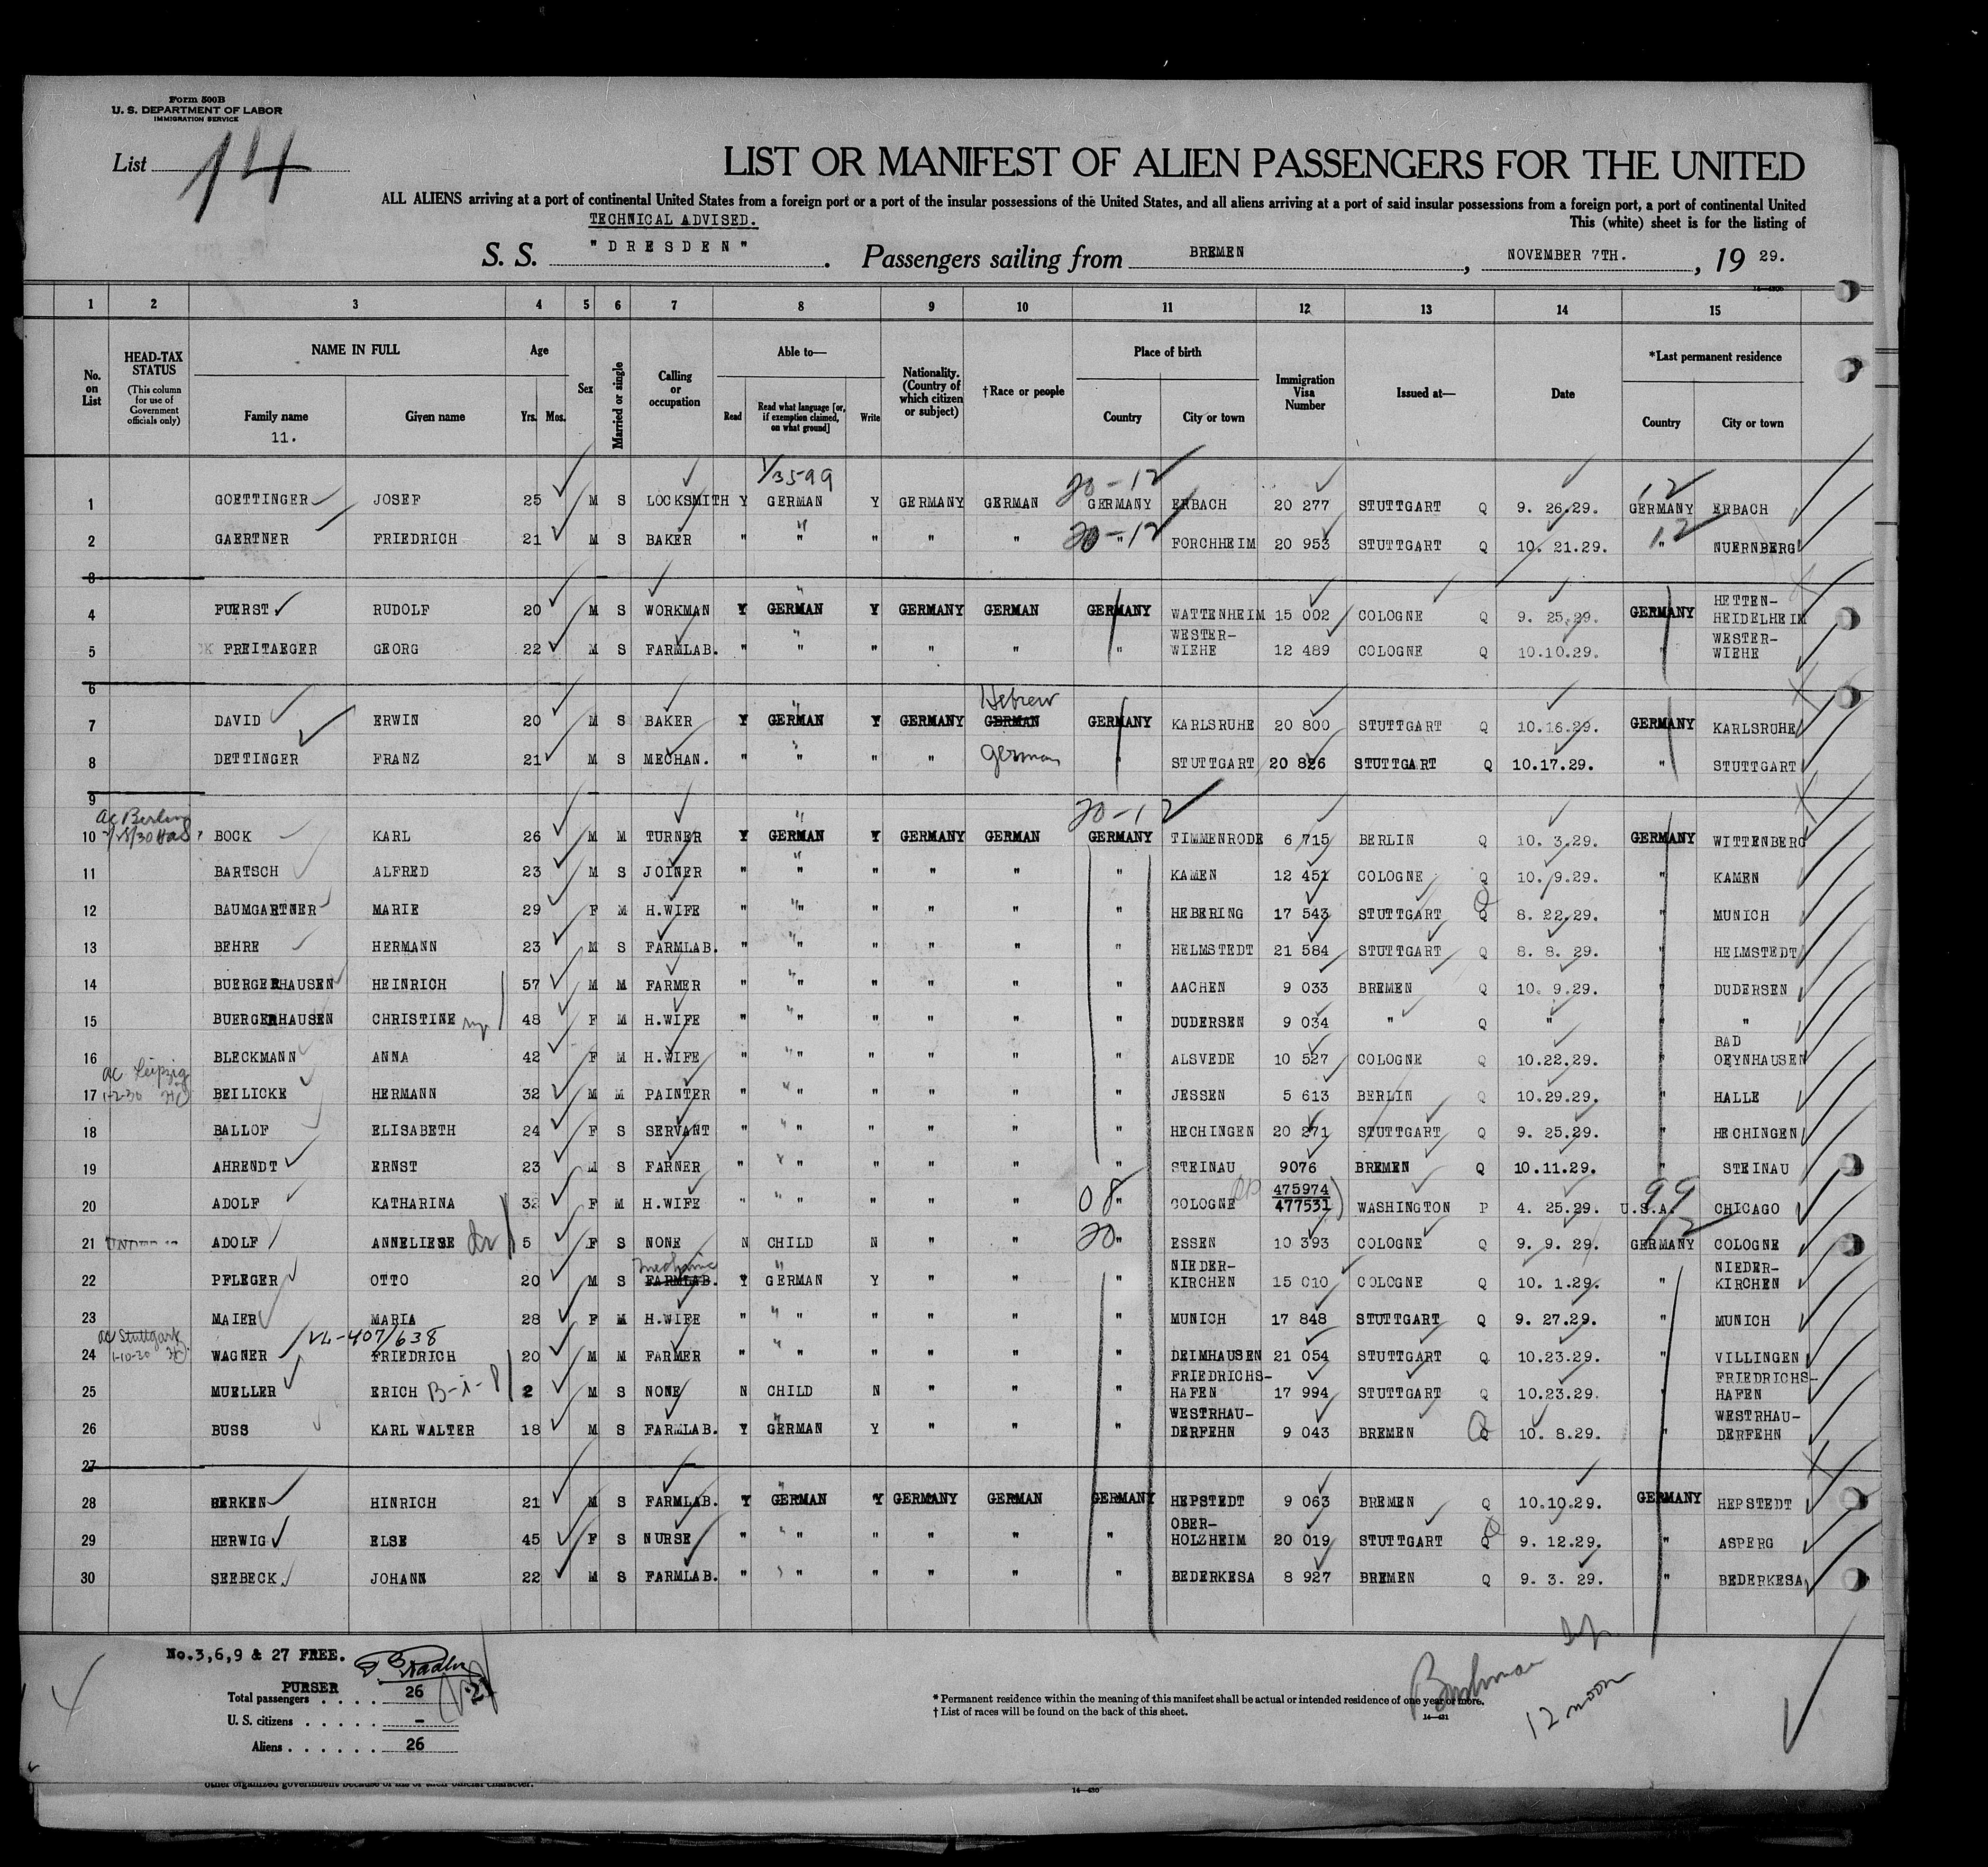 Form 500B
U. S. DEPARTMENT OF LABOR
IMMIGRATION SERVICE
List 14
LIST OR MANIFEST OF ALIEN PASSENGERS FOR THE UNITED
ALL ALIENS arriving at a port of continental United States from a foreign port or a port of the insular possessions of the United States, and all aliens arriving at a port of said insular possessions from a foreign port, a port of continental United
TECHNICAL ADVISED.
This (white) sheet is for the listing of
S. S. "DRESDEN". Passengers sailing from BREMEN, NOVEMBER 7TH., 19 29.
1 2 3 4 5 6 7 8 9 10 11 12 13 14 15
No. on List
HEAD-TAX STATUS (This column for use of Government officials only)
NAME IN FULL Family name Given name
11.
Age Yrs. Mos.
Sex
Married or single
Calling or occupation
Able to— Read Read what language [or, if exemption claimed, on what ground] Write
Nationality. (Country of which citizen or subject)
†Race or people
Place of birth Country City or town
Immigration Visa Number
Issued at—
Date
*Last permanent residence Country City or town
1/3599 20-12 12
1 GOETTINGER JOSEF 25 M S LOCKSMITH Y GERMAN Y GERMANY GERMAN GERMANY ERBACH 20 277 STUTTGART Q 9. 26.29. GERMANY ERBACH
20-12 12
2 GAERTNER FRIEDRICH 21 M S BAKER " " " " " " FORCHHEIM 20 953 STUTTGART Q 10. 21.29. " NUERNBERG
3
4 FUERST RUDOLF 20 M S WORKMAN Y GERMAN Y GERMANY GERMAN GERMANY WATTENHEIM 15 002 COLOGNE Q 9. 25.29. GERMANY HETTEN-HEIDELHEIM
5 FREITAEGER GEORG 22 M S FARMLAB. " " " " " " WESTER-WIEHE 12 489 COLOGNE Q 10.10.29. " WESTER-WIEHE
6
Hebrew
7 DAVID ERWIN 20 M S BAKER Y GERMAN Y GERMANY GERMAN GERMANY KARLSRUHE 20 800 STUTTGART Q 10.16.29. GERMANY KARLSRUHE
8 DETTINGER FRANZ 21 M S MECHAN. " " " " German " STUTTGART 20 826 STUTTGART Q 10.17.29. " STUTTGART
9
ac Berlin 20-12
10 BOCK KARL 26 M M TURNER Y GERMAN Y GERMANY GERMAN GERMANY TIMMENRODE 6 715 BERLIN Q 10. 3.29. GERMANY WITTENBERG
11 BARTSCH ALFRED 23 M S JOINER " " " " " " KAMEN 12 451 COLOGNE Q 10. 9.29. " KAMEN
12 BAUMGARTNER MARIE 29 F M H.WIFE " " " " " " HEBERING 17 543 STUTTGART Q 8. 22.29. " MUNICH
13 BEHRE HERMANN 23 M S FARMLAB. " " " " " " HELMSTEDT 21 584 STUTTGART Q 8. 8. 29. " HELMSTEDT
14 BUERGERHAUSEN HEINRICH 57 M M FARMER " " " " " " AACHEN 9 033 BREMEN Q 10. 9.29. " DUDERSEN
15 BUERGERHAUSEN CHRISTINE 48 F M H.WIFE " " " " " " DUDERSEN 9 034 " Q " " "
16 BLECKMANN ANNA 42 F M H.WIFE " " " " " " ALSVEDE 10 527 COLOGNE Q 10.22.29. " BAD OEYNHAUSEN
ac Leipzig
17 1-2-30 BEILICKE HERMANN 32 M M PAINTER " " " " " " JESSEN 5 613 BERLIN Q 10.29.29. " HALLE
18 BALLOF ELISABETH 24 F S SERVANT " " " " " " HECHINGEN 20 271 STUTTGART Q 9. 25.29. " HECHINGEN
19 AHRENDT ERNST 23 M S FARNER " " " " " " STEINAU 9076 BREMEN Q 10.11.29. " STEINAU
20 ADOLF KATHARINA 32 F M H.WIFE " " " " " 08 " COLOGNE 475974 477531 WASHINGTON P 4. 25.29. U.S.A. 99 CHICAGO
21 ADOLF ANNELIESE 5 F S NONE N CHILD N " " 20 " ESSEN 10 393 COLOGNE Q 9. 9. 29. GERMANY COLOGNE
mechanic
22 PFLEGER OTTO 20 M S FARMLAB. Y GERMAN Y " " " NIEDER-KIRCHEN 15 010 COLOGNE Q 10. 1.29. " NIEDER-KIRCHEN
23 MAIER MARIA 28 F M H.WIFE " " " " " " MUNICH 17 848 STUTTGART Q 9. 27.29. " MUNICH
ac Stuttgart VL-407/638
24 1-10-30 WAGNER FRIEDRICH 20 M M FARMER " " " " " " DEIMHAUSEN 21 054 STUTTGART Q 10.23.29. " VILLINGEN
25 MUELLER ERICH B-i-P 2 M S NONE N CHILD N " " " FRIEDRICHS-HAFEN 17 994 STUTTGART Q 10.23.29. " FRIEDRICHS-HAFEN
26 BUSS KARL WALTER 18 M S FARMLAB. Y GERMAN Y " " " WESTRHAU-DERFEHN 9 043 BREMEN Q 10. 8.29. " WESTRHAU-DERFEHN
27
28 BERKEN HINRICH 21 M S FARMLAB. Y GERMAN Y GERMANY GERMAN GERMANY HEPSTEDT 9 063 BREMEN Q 10.10.29. GERMANY HEPSTEDT
29 HERWIG ELSE 45 F S NURSE " " " " " " OBER-HOLZHEIM 20 019 STUTTGART Q 9. 12.29. " ASPERG
30 SEEBECK JOHANN 22 M S FARMLAB. " " " " " " BEDERKESA 8 927 BREMEN Q 9. 3. 29. " BEDERKESA
No.3,6,9 & 27 FREE.
PURSER
Total passengers . . . . 26
U. S. citizens . . . . . -
Aliens . . . . . . 26
* Permanent residence within the meaning of this manifest shall be actual or intended residence of one year or more.
† List of races will be found on the back of this sheet.
14—431
12 noon
other organized government because of his or their official character.
14—430